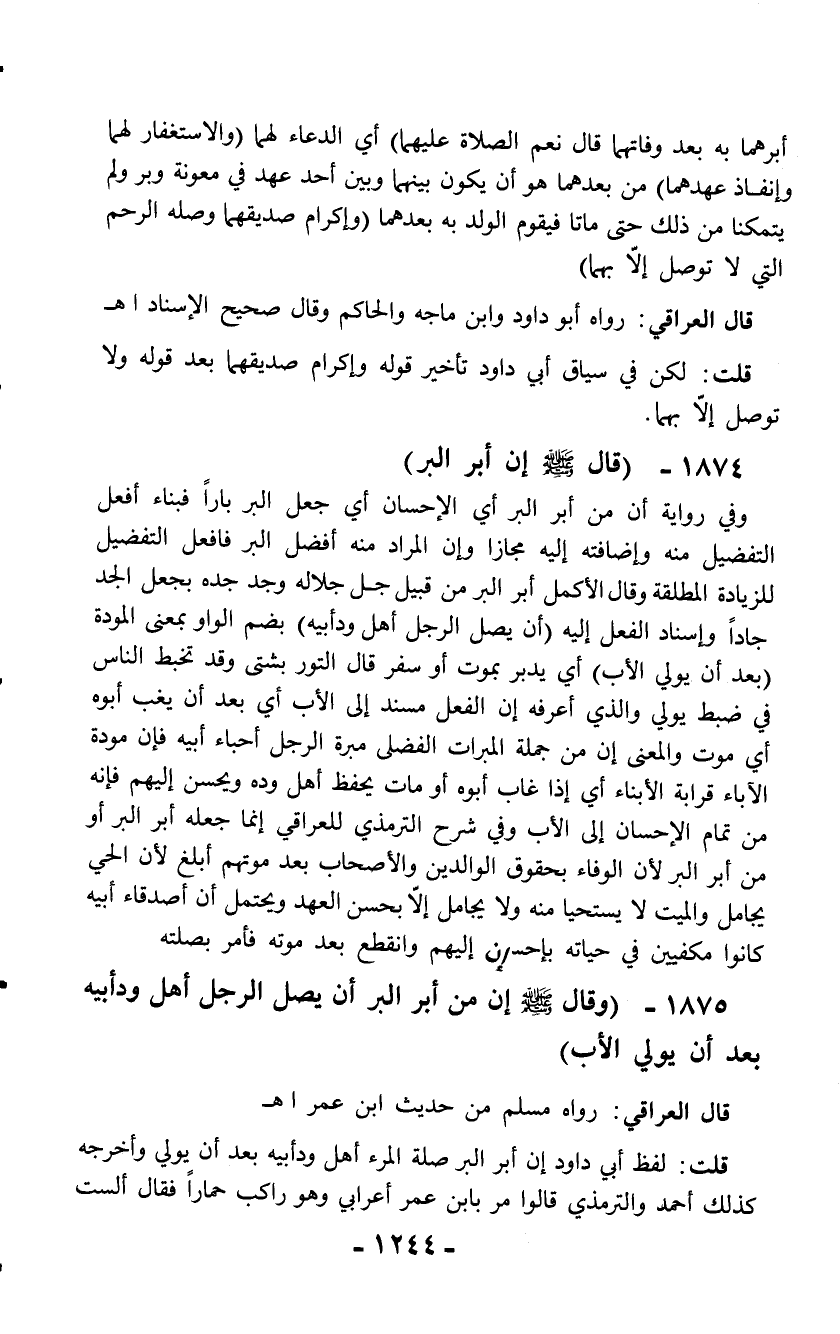 أبرهما به بعد وفاتهما قال نعم الصلاة عليهما) أي الدعاء لهما (والاستغفار لهما
وإنفـاذ عهدهما) من بعدهما هو أن يكون بينهما وبين أحد عهد في معونة وبر ولم
يتمكنا من ذلك حتى ماتا فيقوم الولد به بعدهما (وإكرام صديقهما وصله الرحم
التي لا توصل إلاّ بهما)
قال العراقي: رواه أبو داود وابن ماجه والحاكم وقال صحيح الإسناد اهـ
قلت: لكن في سياق أبي داود تأخير قوله وإكرام صديقهما بعد قوله ولا
توصل إلاّ بهما.
١٨٧٤ - (قال ﷺ إن أبر البر)
وفي رواية أن من أبر البر أي الإحسان أي جعل البر باراً فبناء أفعل
التفضيل منه وإضافته إليه مجازا وإن المراد منه أفضل البر فافعل التفضيل
للزيادة المطلقة وقال الأكمل أبر البر من قبيل جـل جلاله وجد جده بجعل الجد
جاداً وإسناد الفعل إليه (أن يصل الرجل أهل ودأبيه) بضم الواو بمعنى المودة
(بعد أن يولي الأب) أي يدبر بموت أو سفر قال التور بشتى وقد تخبط الناس
في ضبط يولي والذي أعرفه إن الفعل مسند إلى الأب أي بعد أن يغب أبوه
أي موت والمعنى إن من جملة المبرات الفضلى مبرة الرجل أحباء أبيه فإن مودة
الآباء قرابة الأبناء أي إذا غاب أبوه أو مات يحفظ أهل وده ويحسن إليهم فإنه
من تمام الإحسان إلى الأب وفي شرح الترمذي للعراقي إنما جعله أبر البر أو
من أبر البر لأن الوفاء بحقوق الوالدين والأصحاب بعد موتهم أبلغ لأن الحي
يجامل والميت لا يستحيا منه ولا يجامل إلاّ بحسن العهد ويحتمل أن أصدقاء أبيه
كانوا مكفيين في حياته بإحسان إليهم وانقطع بعد موته فأمر بصلته
١٨٧٥ - (وقال ﷺ إن من أبر البر أن يصل الرجل أهل ودأبيه
بعد أن يولي الأب)
قال العراقي: رواه مسلم من حديث ابن عمر اهـ
قلت: لفظ أبي داود إن أبر البر صلة المرء أهل ودأبيه بعد أن يولي وأخرجه
كذلك أحمد والترمذي قالوا مر بابن عمر أعرابي وهو راكب حماراً فقال ألست
- ١٢٤٤ -